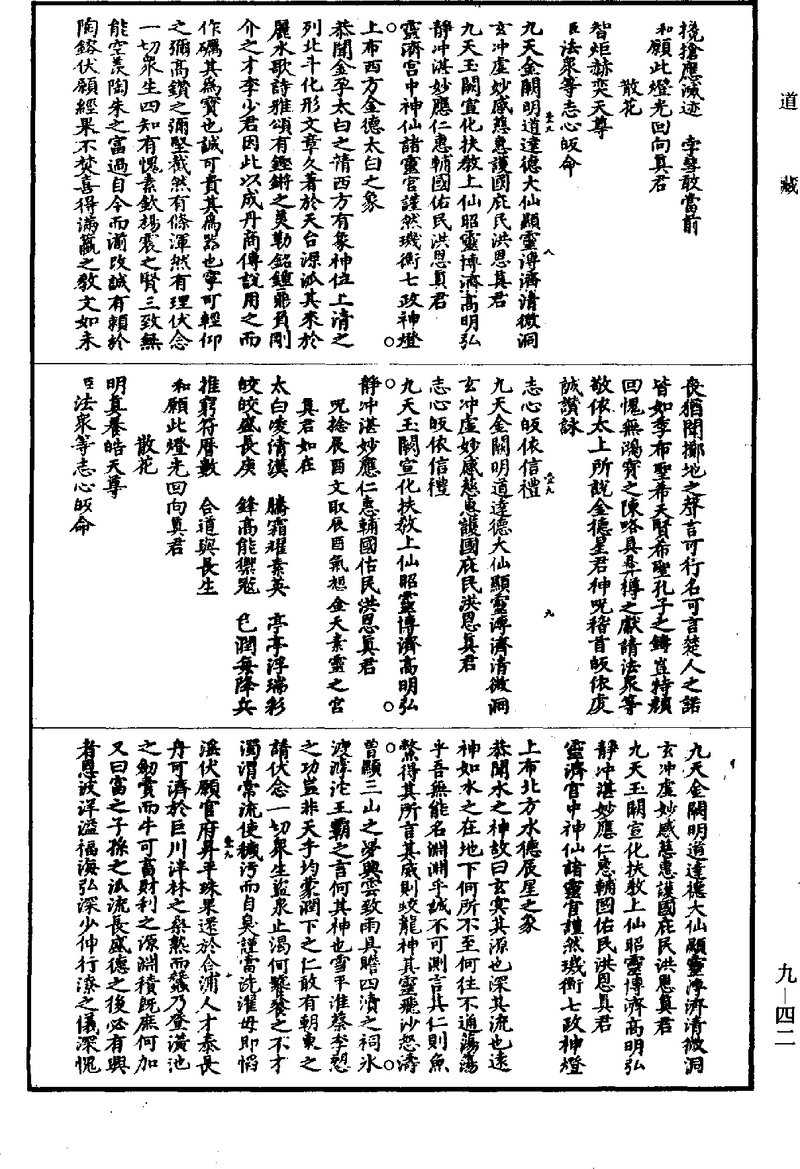 道藏
攙搶應滅迹　孛彗敢當前
和願此燈光回向真君
散花
智炬赫奕天尊
臣法衆等志心皈命
九天金闕明道達德大仙顯靈溥濟清微洞
玄冲虛妙感慈惠護國庇民洪恩真君
九天玉闕宣化扶教上仙昭靈博濟高明弘
靜冲湛妙應仁惠輔國佑民洪恩真君
靈濟宮中神仙諸靈官謹然璣衡七政神燈
上布西方金德太白之象
恭聞金孕太白之清西方有象神位上清之
列北斗化形文章久著於天台源派其來於
麗水歌詩雅頌有鏗鏘之美勒銘鍾鼎負剛
介之才李少君因此以成丹商傳說用之而
作礪其為寶也誠可貴其為器也寧可輕仰
之彌高鑽之彌堅截然有條渾然有理伏念
一切衆生四知有愧素欽楊震之賢三致無
能空羨陶朱之富過自今而湔改誠有賴於
陶鎔伏願經果不焚喜得滿籯之教文如未
喪猶聞擲地之聲言可行名可言楚人之諾
皆如季布聖希天賢希聖孔子之鑄豈特顏
回愧無鴻寶之陳略具彝樽之獻請法衆等
敬依太上所說金德星君神呪稽首皈依虔
誠讚詠
志心皈依信禮
九天金闕明道達德大仙顯靈溥濟清微洞
玄冲虛妙感慈惠護國庇民洪恩真君
志心皈依信禮
九天玉闕宣化扶教上仙昭靈博濟高明弘
靜冲湛妙應仁惠輔國佑民洪恩真君
呪捻辰酉文取辰酉氣想金天素靈之宮
真君如在
太白凌清漢　騰霜耀素英　亭亭浮瑞彩
皎皎盛長庚　鋒高能禦寇　色潤每降兵
推窮符曆數　合道與長生
和願此燈光回向真君
散花
明真養皓天尊
臣法衆等志心皈命
九天金闕明道達德大仙顯靈溥濟清微洞
玄冲虛妙感慈惠護國庇民洪恩真君
九天玉闕宣化扶教上仙昭靈博濟高明弘
靜冲湛妙應仁惠輔國佑民洪恩真君
靈濟宮中神仙諸靈官謹然璣衡七政神燈
上布北方水德辰星之象
恭聞水之神故曰玄冥其源也深其流也遠
神如水之在地下何所不至何往不通蕩蕩
乎吾無能名淵淵乎誠不可測言其仁則魚
鱉得其所言其威則蛟龍神其靈飛沙怒濤
曾顯三山之勇興雲致雨具瞻四瀆之祠氷
渡滹沱王霸之言何其神也雪平淮蔡李愬
之功豈非天乎均蒙潤下之仁敢有朝東之
請伏念一切衆生盜泉止渴何饕餮之不才
濁渭常流使穢污而自臭謹當洗濯毋即慆
淫伏願官府昇平珠果還於合浦人才泰長
舟可濟於巨川洋林之桑椹而鴞乃登潢池
之劍賣而牛可畜財利之源淵積既庶何加
又曰富之子孫之派流長盛德之後必有興
者恩波洋溢福海弘深少伸行潦之儀深愧
九—四二